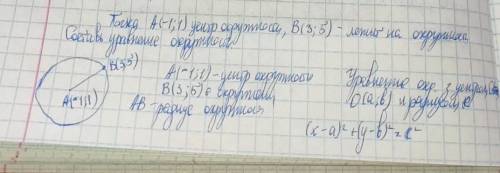 Точка A(-1;1) центр окружности, B(3;5) - лежит на окружности.
Составь уравнение окружности
B(3;5)
A(-1;1)
A(-1;1) - центр окружности
B(3;5) ∈ окружности
AB - радиус окружности
Уравнение окр. з центром
O(a;b) и радиусом R
(x-a)²+(y-b)²=R²